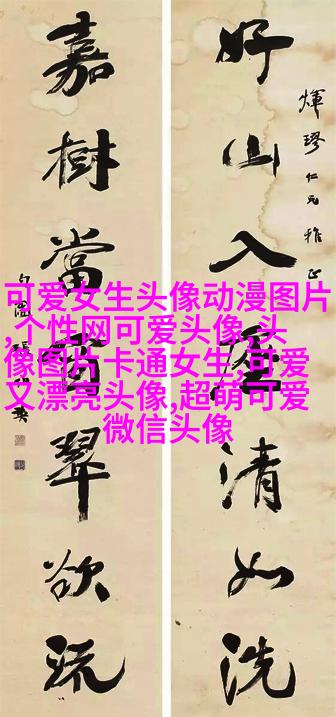 煇璆仁兄雅正
好山入座清如洗
嘉樹當窗翠欲流
可爱女生头像动漫图片
,个性网可爱头像,头
像图片卡通女生,可爱
又漂亮头像,超萌可爱
微信头像